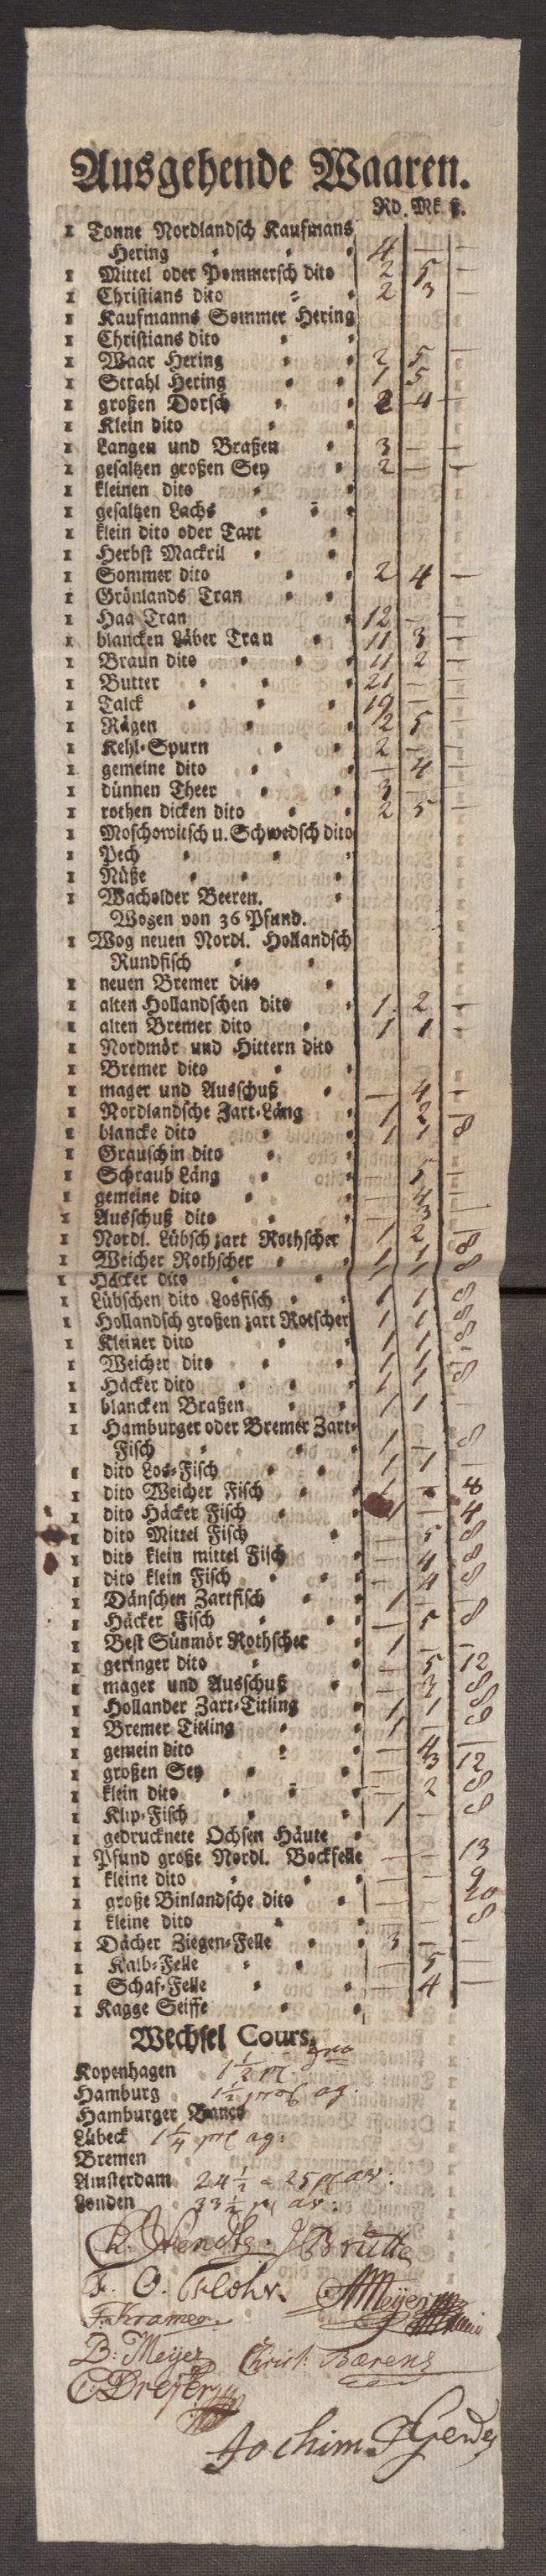 Ausgehende Waaren.
Rd. Mk ß.
1 Tonne Nordlandsch Kaufmans
Hering 4 — —
1 Mittel oder Pommersch dito 2 5 —
1 Christians dito 2 3 —
1 Kaufmanns Sommer Hering
1 Christians dito
1 Waar Hering 2 5 —
1 Strahl Hering 1 5
1 großen Dorsch 2 4 —
1 Klein dito
1 Langen und Braßen 3 — —
1 gesaltzen großen Sey 2 — —
1 kleinen dito
1 gesaltzen Lachs
1 klein dito oder Tart
1 Herbst Mackril
1 Sommer dito 2 4 —
1 Grönlands Tran
1 Haa Tran 12 — —
1 blancken Läber Tran 11 3 —
1 Braun dito 11 2 —
1 Butter 21 — —
1 Talck 19 — —
1 Rägen 2 5 —
1 Kehl-Spurn 2 — —
1 gemeine dito — 4 —
1 dünnen Theer 3 — —
1 rothen dicken dito 2 5 —
1 Moschowitsch u. Schwedsch dito
1 Pech
1 Nüße
1 Wacholder Beeren.
Wogen von 36 Pfund.
1 Wog neuen Nordl. Hollandsch
Rundfisch
1 neuen Bremer dito
1 alten Hollandschen dito 1 2 —
1 alten Bremer dito 1 1 —
1 Nordmör und Hittern dito
1 Bremer dito
1 mager und Ausschuß — 4 —
1 Nordlandsche Zart-Läng 1 2 —
1 blancke dito 1 1 8
1 Grauschin dito
1 Schraub Läng 5 —
1 gemeine dito — 4 —
1 Ausschuß dito — 3
1 Nordl. Lübsch zart Rothscher 1 2 —
1 Weicher Rothscher 1 1 8
1 Häcker dito 1 1 8
1 Lübschen dito Losfisch 1 1 8
1 Hollandsch großen zart Rotscher 1 1 8
1 Kleiner dito 1 1 8
1 Weicher dito 1 1 8
1 Häcker dito 1 1 8
1 blancken Braßen 1 1 —
1 Hamburger oder Bremer Zart-
Fisch 1 — 8
1 dito Los-Fisch 1 1 —
1 dito Weicher Fisch 1 — 8
1 dito Häcker Fisch 1 — 4
1 dito Mittel Fisch — 5 8
1 dito klein mittel Fisch — 4 8
1 dito klein Fisch — 4 8
1 Dänschen Zartfisch 1 —
1 Häcker Fisch — 5 8
1 Best Sünmör Rothscher 1 —
1 geringer dito — 5 12
1 mager und Ausschuß — 3 8
1 Hollander Zart-Titling 1 1 8
1 Bremer Titling 1 —
1 gemein dito — 4 —
1 großen Sey — 3 12
1 klein dito — 2 8
1 Klip-Fisch 1 — 8
1 gedrucknete Ochsen Häute
1 Pfund große Nordl. Bockfelle — — 13
1 kleine dito — — 9
1 große Binlandsche dito — — 20
1 kleine dito — — 8
1 Dächer Ziegen-Felle 3 — —
1 Kalb-Felle — 5 —
1 Schaf-Felle — 4 —
1 Kagge Seiffe
Wechsel Cours.
Kopenhagen 1 1/2
Hamburg 1 1/2 ag:
Hamburger Banco
Lübeck 1 1/4 ag:
Bremen
Amsterdam 24 1/2 a 25
Londen 33 1/2
Brütte
F. O. Flohr. Meijer
F. Kramer
B: Meijer Christ: Bærens
C Dreyer
Jochim Gerdes